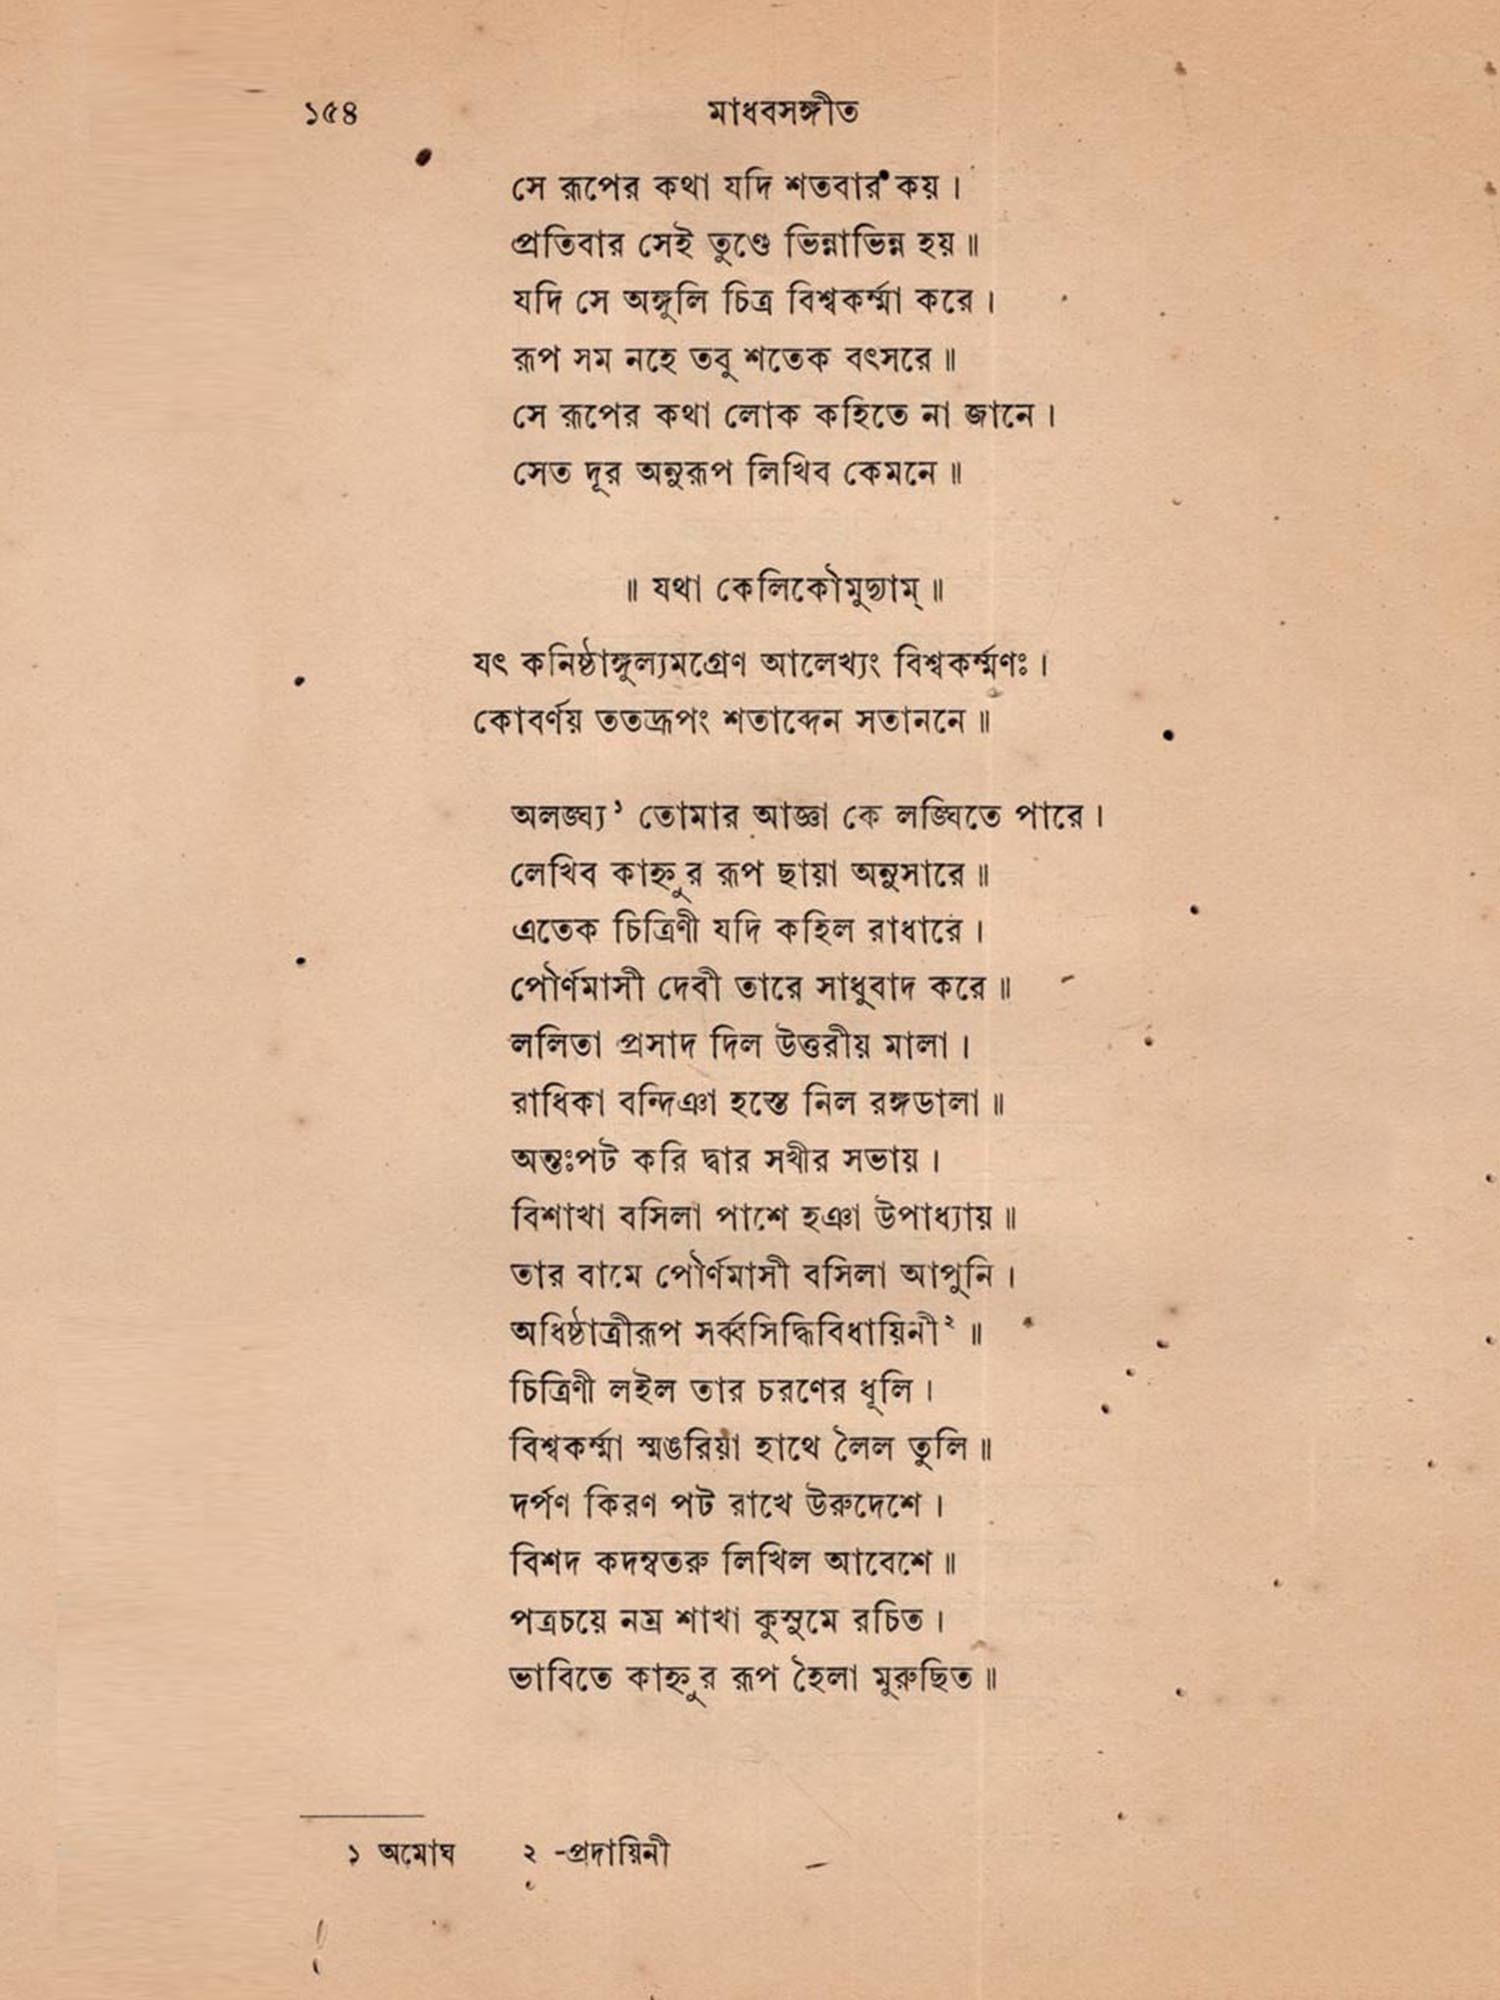 ১৫৪ মাধবসঙ্গীত
সে রূপের কথা যদি শতবার কয় ।
প্রতিবার সেই তুণ্ডে ভিন্নাভিন্ন হয় ॥
যদি সে অঙ্গুলি চিত্র বিশ্বকর্ম্মা করে ।
রূপ সম নহে তবু শতেক বৎসরে ॥
সে রূপের কথা লোক কহিতে না জানে ।
সেত দূর অনুরূপ লিখিব কেমনে ॥
॥ যথা কেলিকৌমুদ্যাম্ ॥
যৎ কনিষ্ঠাঙ্গুল্যমগ্রেণ আলেখ্যং বিশ্বকর্ম্মণঃ ।
কোবর্ণয় ততদ্রূপং শতাব্দেন সতাননে ॥
অলঙ্ঘ্য১ তোমার আজ্ঞা কে লঙ্ঘিতে পারে ।
লেখিব কাহ্নুর রূপ ছায়া অনুসারে ॥
এতেক চিত্রিণী যদি কহিল রাধারে ।
পৌর্ণমাসী দেবী তারে সাধুবাদ করে ॥
ললিতা প্রসাদ দিল উত্তরীয় মালা ।
রাধিকা বন্দিঞা হস্তে নিল রঙ্গডালা ॥
অন্তঃপট করি দ্বার সখীর সভায় ।
বিশাখা বসিলা পাশে হঞা উপাধ্যায় ॥
তার বামে পৌর্ণমাসী বসিলা আপুনি ।
অধিষ্ঠাত্রীরূপ সর্ব্বসিদ্ধিবিধায়িনী২ ॥
চিত্রিণী লইল তার চরণের ধূলি ।
বিশ্বকর্ম্মা স্মঙরিয়া হাথে লৈল তুলি ॥
দর্পণ কিরণ পট রাখে উরুদেশে ।
বিশদ কদম্বতরু লিখিল আবেশে ॥
পত্রচয়ে নম্র শাখা কুসুমে রচিত ।
ভাবিতে কাহ্নুর রূপ হৈলা মুরুছিত ॥
১ অমোঘ ২ -প্রদায়িনী